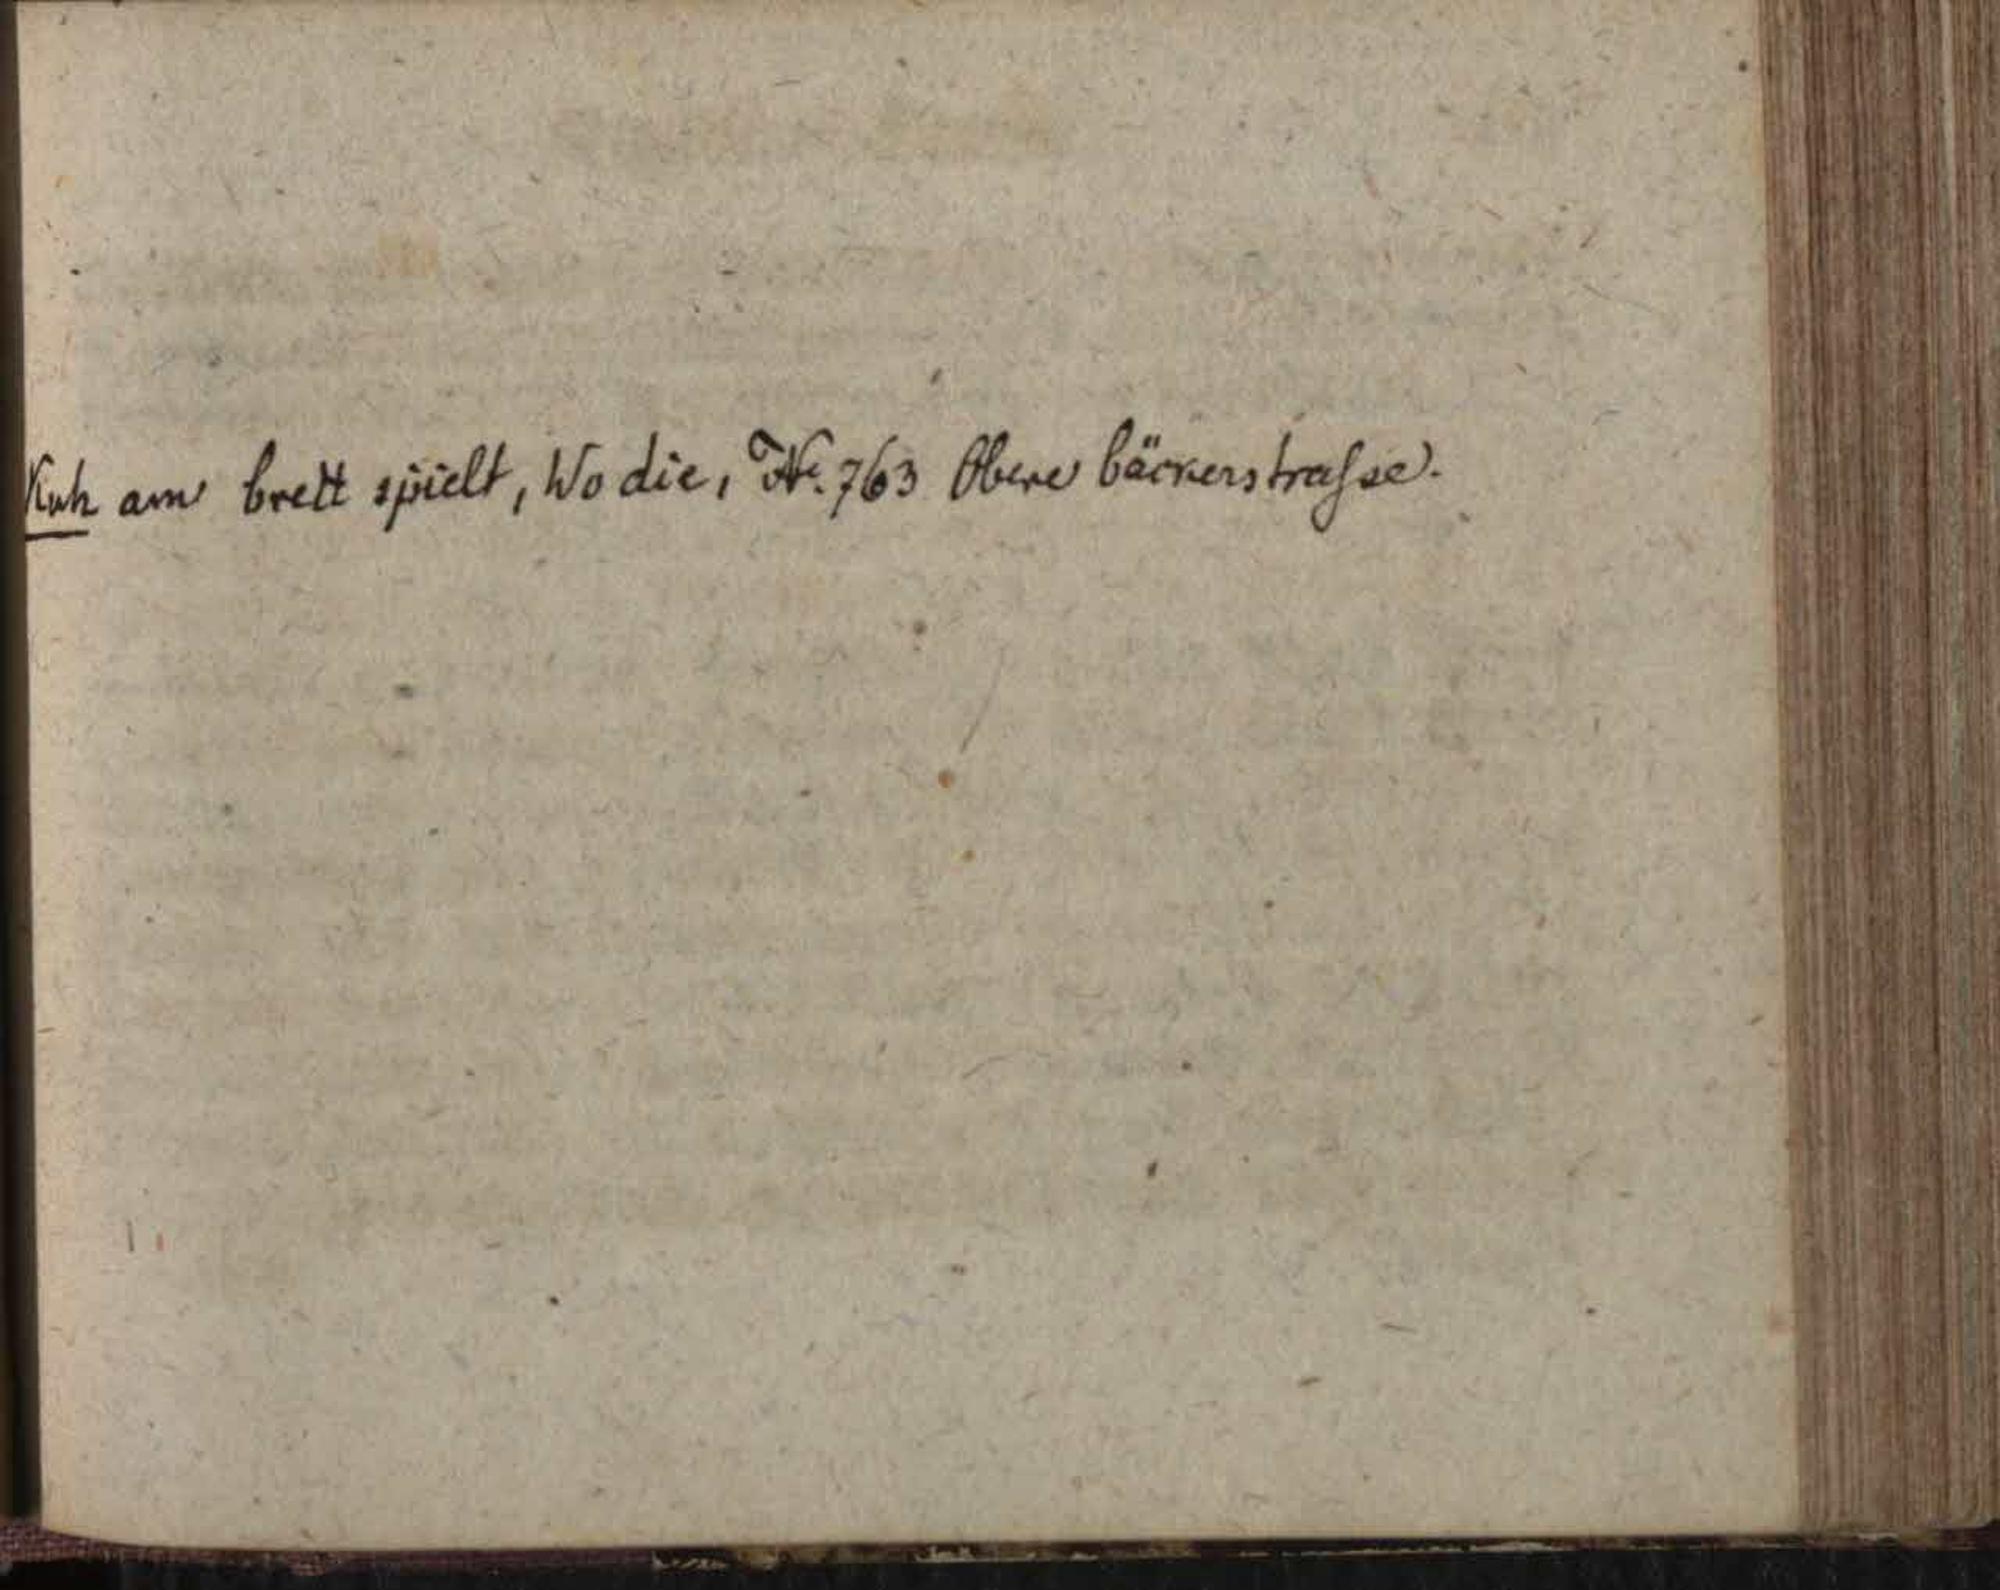 Kuh am brett spielt, Wo die, N<sup>o</sup>. 763 Obere bäckerstraſse.